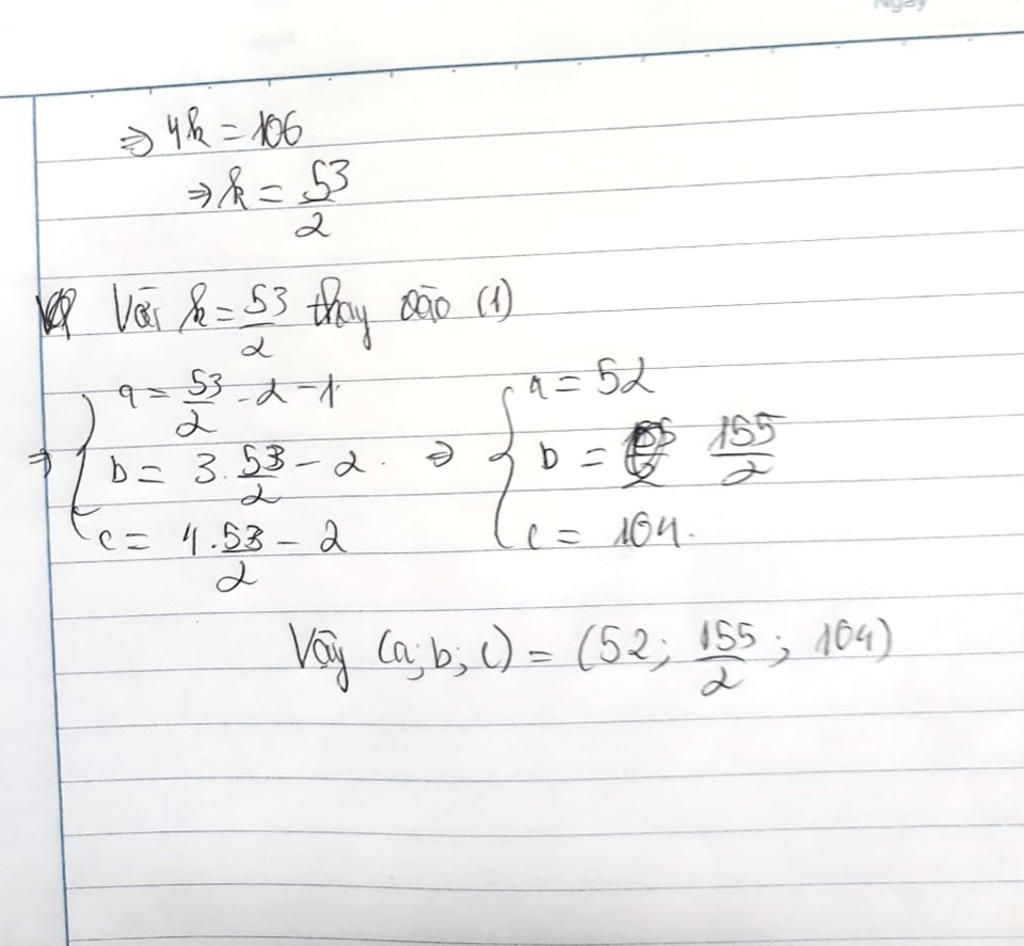 ⇒ 4k = 106
⇒ k = 53/2
Với k = 53/2 thay vào (1)
⇒ { a = 53/2 . 2 - 1
b = 3 . 53/2 - 2 . ⇒
c = 4 . 53/2 - 2
{ a = 52
b = 155/2
c = 104.
Vậy (a; b; c) = (52; 155/2; 104)